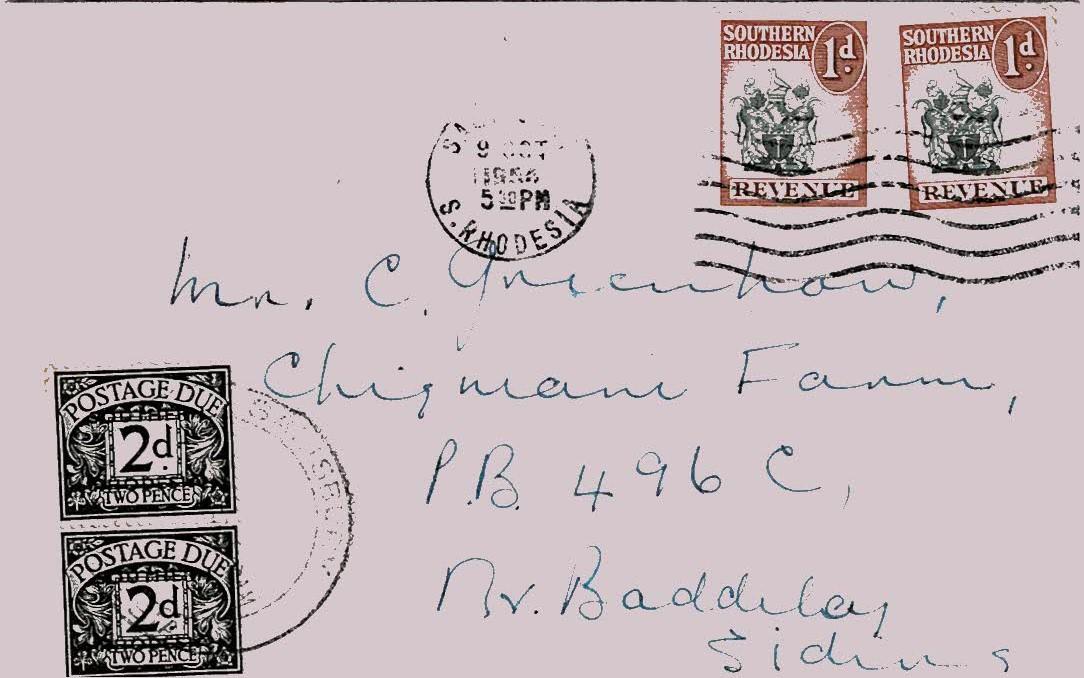 SOUTHERN
RHODESIA 1d.
REVENUE
SOUTHERN
RHODESIA 1d.
REVENUE
9 OCT
5 30 PM
S. RHODESIA
Mr. C. Greenhow,
Farm,
P.B. 496 C,
Nr. Baddeley
Siding
POSTAGE DUE
2d.
TWO PENCE
POSTAGE DUE
2d.
TWO PENCE